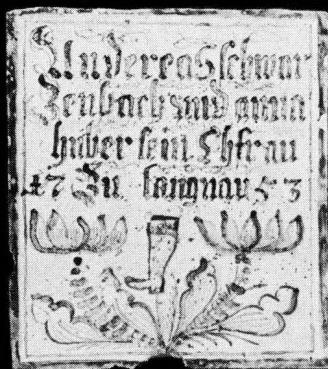 Undereas schwar
Zenbach und anna
huber sein Ehfrau
17 Zu langnau 53